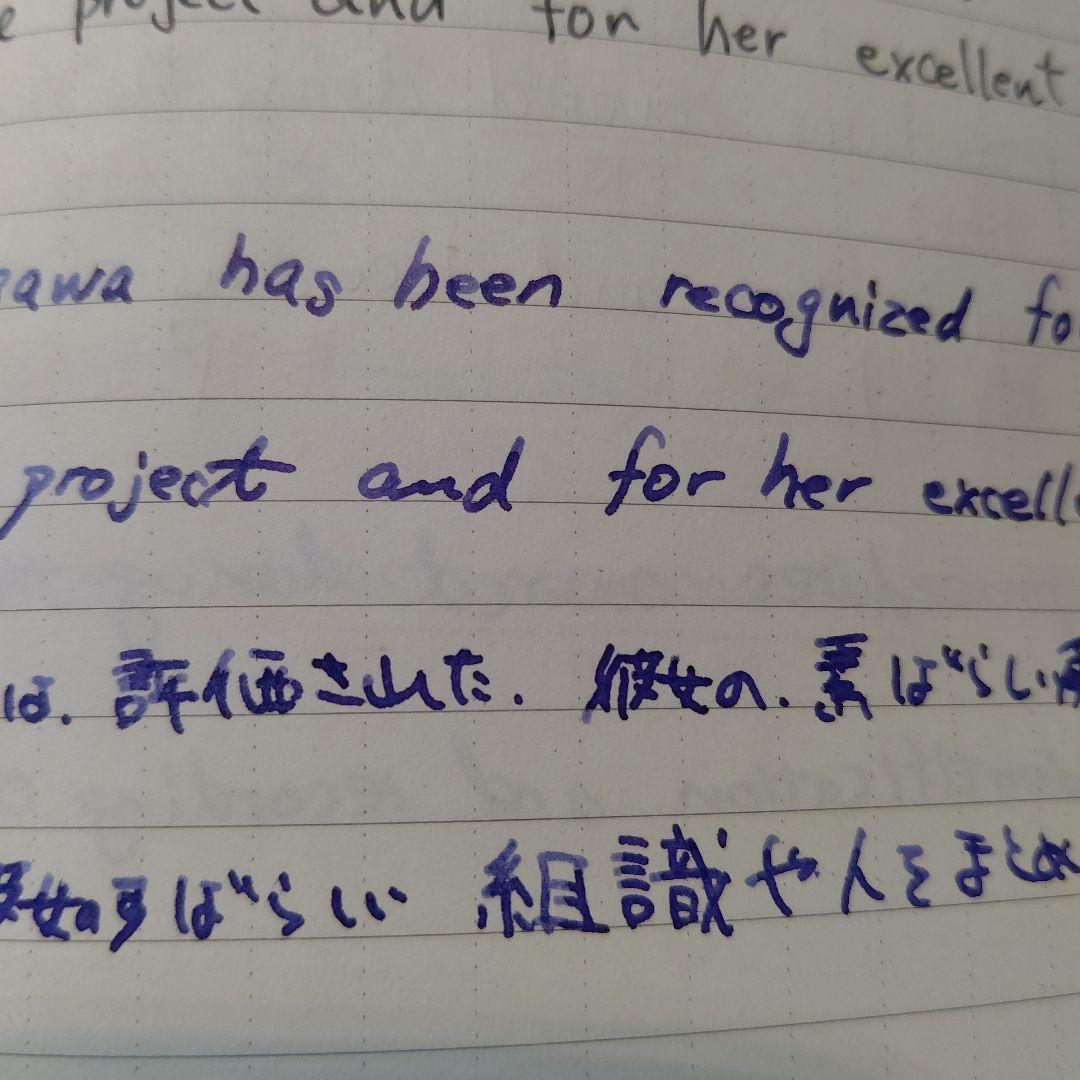 e project and for her excellent
gawa has been recognized fo
project and for her excelle
は. 評価された. 彼女の. 素ばらしい
彼女のすばらしい 組識や人をまとめ